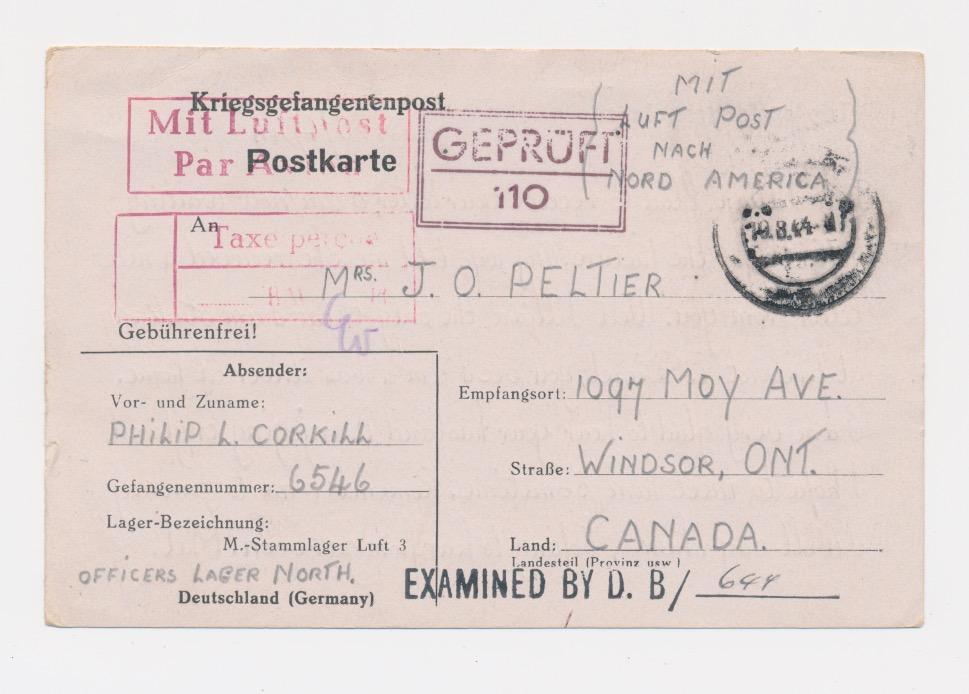 Kriegsgefangenenpost
Mit Luftpost
Par
Postkarte
GEPRÜFT
110
MIT
LUFT POST
NACH
NORD AMERICA
An
Taxe perçue
MRS. J. O. PELTIER
Gebührenfrei!
Absender:
Vor- und Zuname:
PHILIP L. CORKILL
Gefangenennummer: 6546
Lager-Bezeichnung:
M.-Stammlager Luft 3
OFFICERS LAGER NORTH.
Deutschland (Germany)
Empfangsort: 1097 MOY AVE.
Straße: WINDSOR, ONT.
Land: CANADA.
Landesteil (Provinz usw.)
EXAMINED BY D. B/